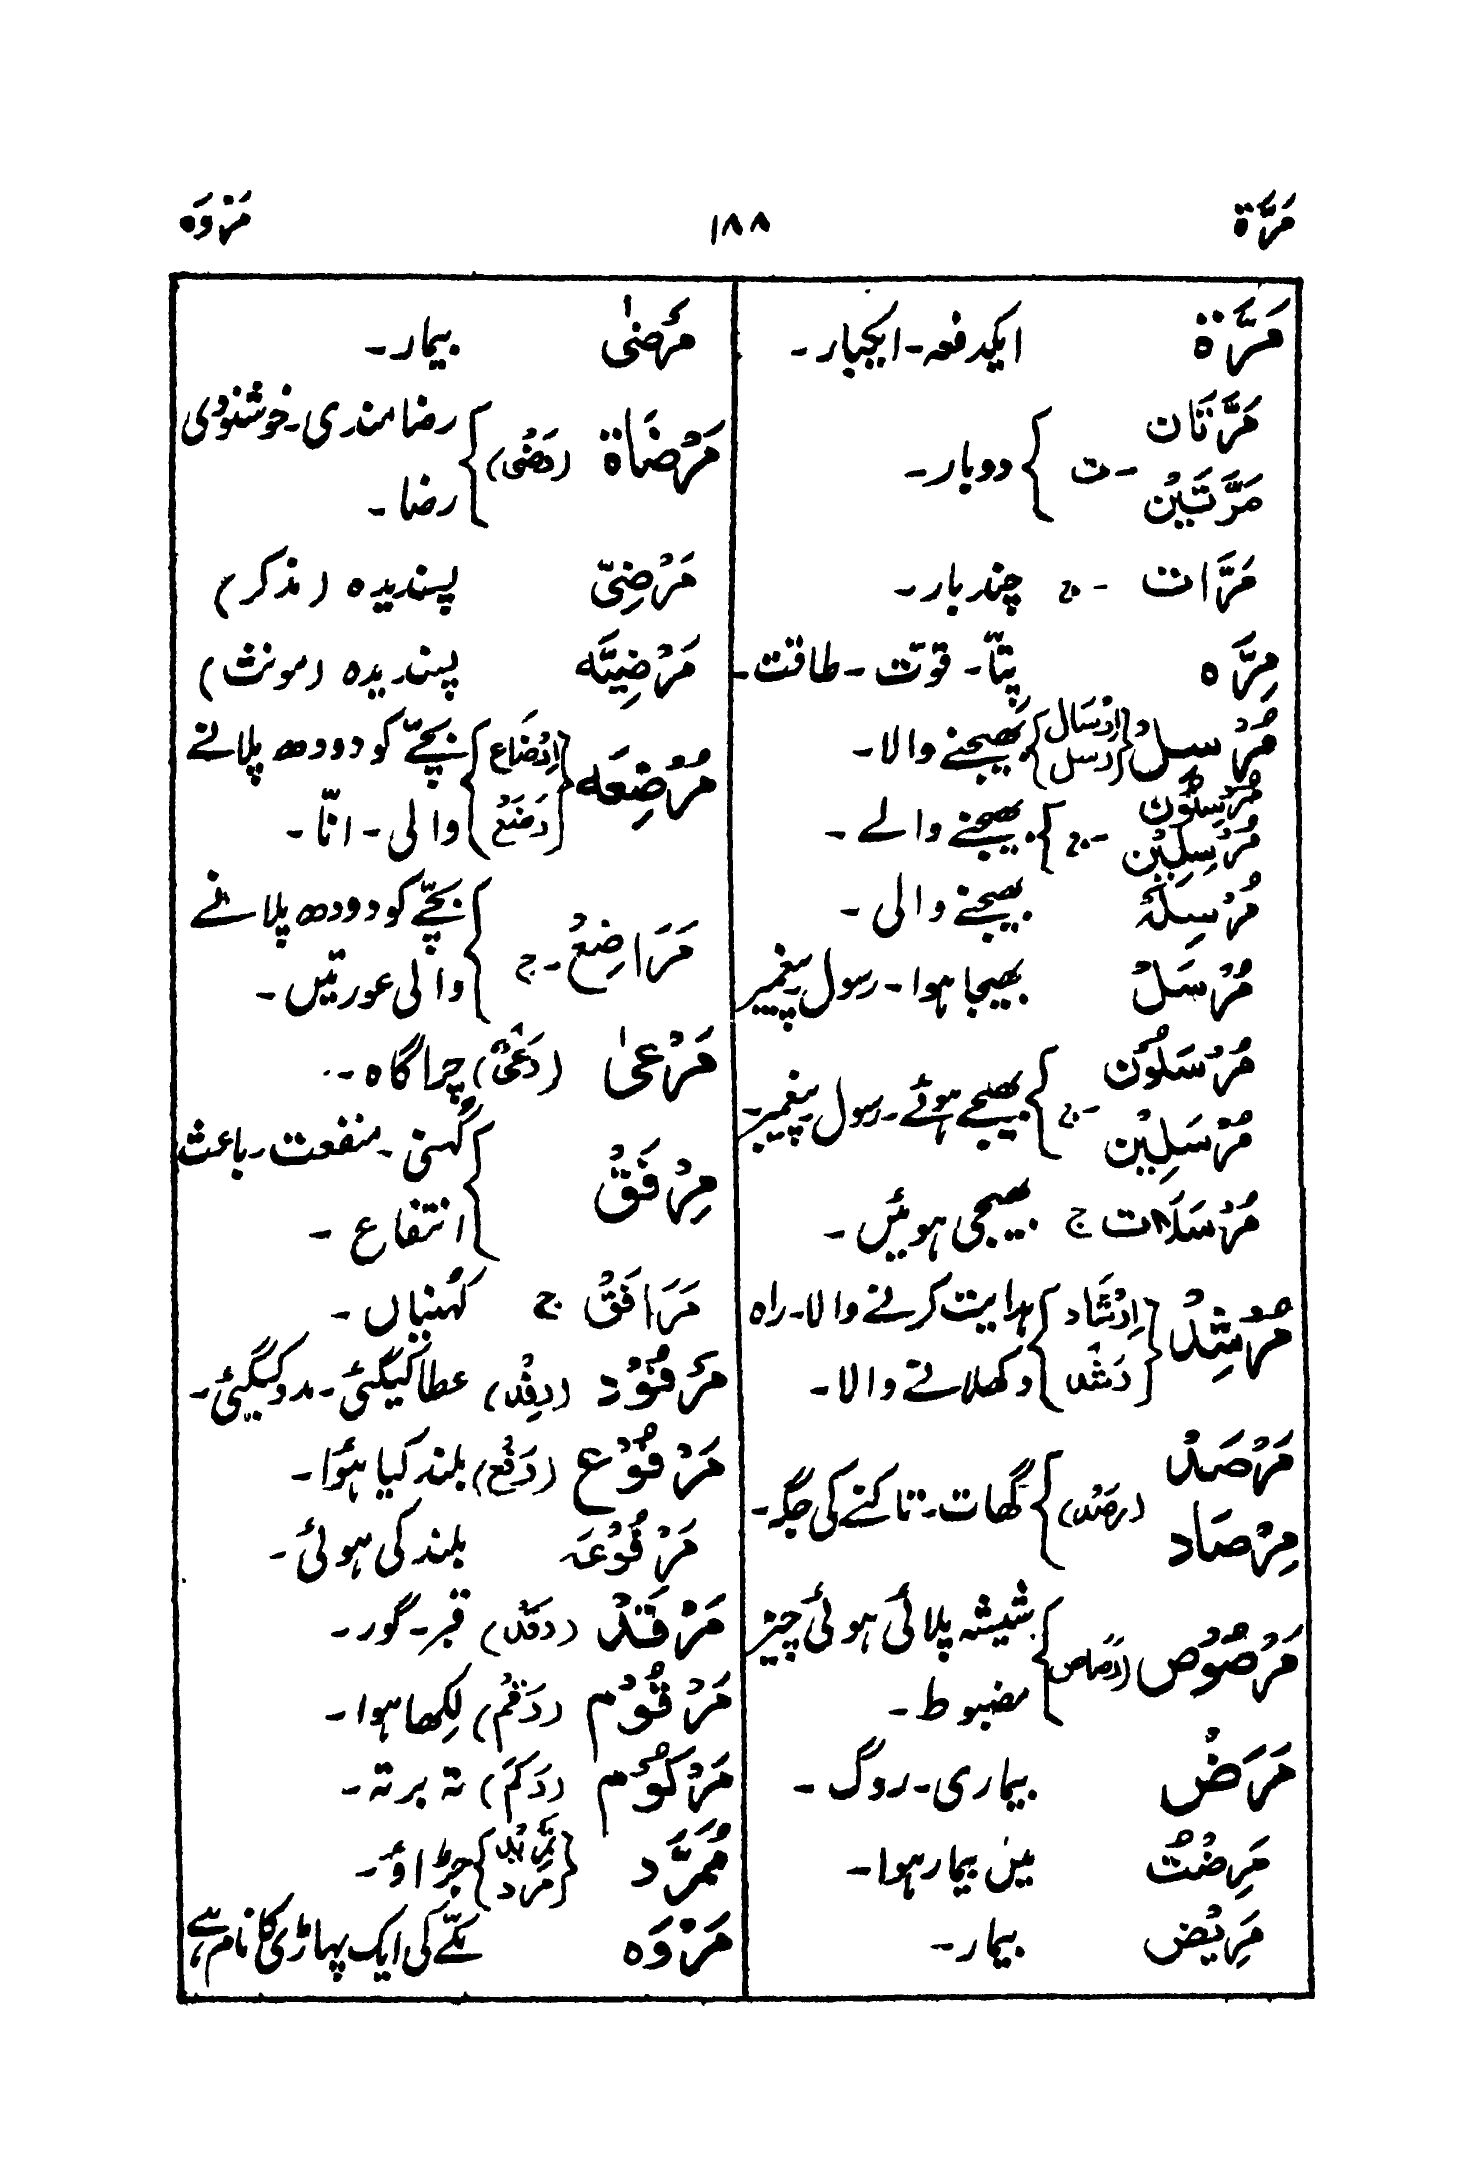 مَرَّة ۱۸۸ مَرْوَه
مَرَّة ایکدفعہ۔ ایکبار۔
مَرَّتَان
مَرَّتَیْن -ت } دوبار۔
مَرَّات -ج چند بار۔
مِرَّہ پتّا۔ قوّت۔ طاقت۔
مُرْسِلْ {اِرْسَال رسل} بھیجنے والا۔
مُرْسِلُوْن
مُرْسِلِیْن -ج } بھیجنے والے۔
مُرْسِلَۃ بھیجنے والی۔
مُرْسَلْ بھیجا ہوا۔ رسول پیغمبر
مُرْسَلُوْن
مُرْسَلِیْن -ج } بھیجے ہوئے۔ رسول پیغمبر۔
مُرْسَلَات ج بھیجی ہوئیں۔
مُرْشِدْ {اِرْشَاد رَشَد} ہدایت کرنے والا۔ راہ
دکھلانے والا۔
مَرْصَدْ
مِرْصَاد (رصَدْ) } گھات۔ تاکنے کی جگہ۔
مَرْصُوْص (رَصَاص) } شیشہ پلائی ہوئی چیز
مضبوط۔
مَرَضْ بیماری۔ روگ۔
مَرِضْتُ میں بیمار ہوا۔
مَرِیْض بیمار۔
مَرْضٰی بیمار۔
مَرْضَاة (رَضْی) } رضامندی۔ خوشنودی
رضا۔
مَرْضِیّ پسندیدہ (مذکر)
مَرْضِیَّہ پسندیدہ (مونث)
مُرْضِعَہ {اِرْضَاع رَضَعْ} بچّے کو دودھ پلانے
والی۔ انّا۔
مَرَاضِعُ۔ج } بچّے کو دودھ پلانے
والی عورتیں۔
مَرْعٰی (رَعْیٌ) چراگاہ۔
مِرْفَقُ } کُہنی۔ منفعت۔ باعث
انتفاع۔
مَرَافَقُ ج کہنیاں۔
مَرْفُوْد (رِفْد) عطا کیگئی۔ مدد کیگئی۔
مَرْفُوْع (رَفْع) بلند کیا ہوا۔
مَرْفُوْعَہ بلند کی ہوئی۔
مَرْقَدْ (رقَدْ) قبر۔ گور۔
مَرْقُوْم (رَقْمْ) لکھا ہوا۔
مَرْکُوْم (رَکَمَ) تہ بر تہ۔
مُمَرَّد {تَمْرِیْد مَرَد} جڑاؤ۔
مَرْوَہ مکّے کی ایک پہاڑی کا نام ہے